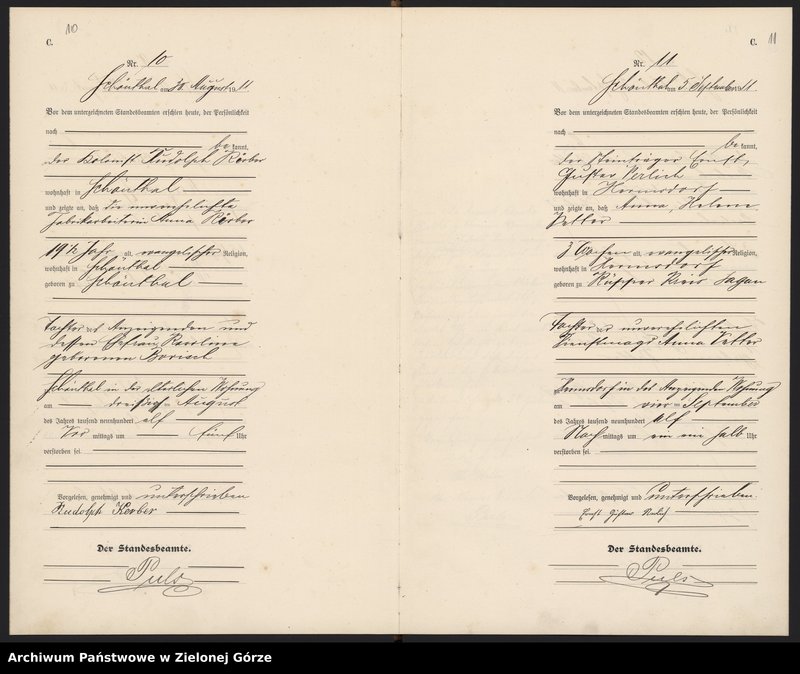 10
C.
Nr. 10
Schönthal am 30. August 1911.
Vor dem unterzeichneten Standesbeamten erschien heute, der Persönlichkeit
nach
be kannt,
der Kolonist Rudolph Körber
wohnhaft in Schönthal
und zeigte an, daß die unverehelichte
Fabrikarbeiterin Anna Körber
19 1/2 Jahr alt, evangelischer Religion,
wohnhaft in Schönthal
geboren zu Schönthal
Tochter des Anzeigenden und
dessen Ehefrau Karoline
geborenen
Schönthal in der elterlichen Wohnung
am dreißigsten August
des Jahres tausend neunhundert elf
Vor mittags um fünf Uhr
verstorben sei.
Vorgelesen, genehmigt und unterschrieben
Rudolph Körber
Der Standesbeamte.
Puls
11
C.
Nr. 11
Schönthal am 5. September 1911.
Vor dem unterzeichneten Standesbeamten erschien heute, der Persönlichkeit
nach
be kannt,
der Ernst,
Gustav
wohnhaft in Hermsdorf
und zeigte an, daß Anna, Helene
Vetter
3 Wochen alt, evangelischer Religion,
wohnhaft in Hermsdorf
geboren zu Küpper Kreis Sagan
Tochter der unverehelichten
Dienstmagd Anna Vetter
zu Hermsdorf in des Anzeigenden Wohnung
am vier September
des Jahres tausend neunhundert elf
Nach mittags um ein halb Uhr
verstorben sei.
Vorgelesen, genehmigt und unterschrieben.
Ernst Gustav
Der Standesbeamte.
Puls
Archiwum Państwowe w Zielonej Górze